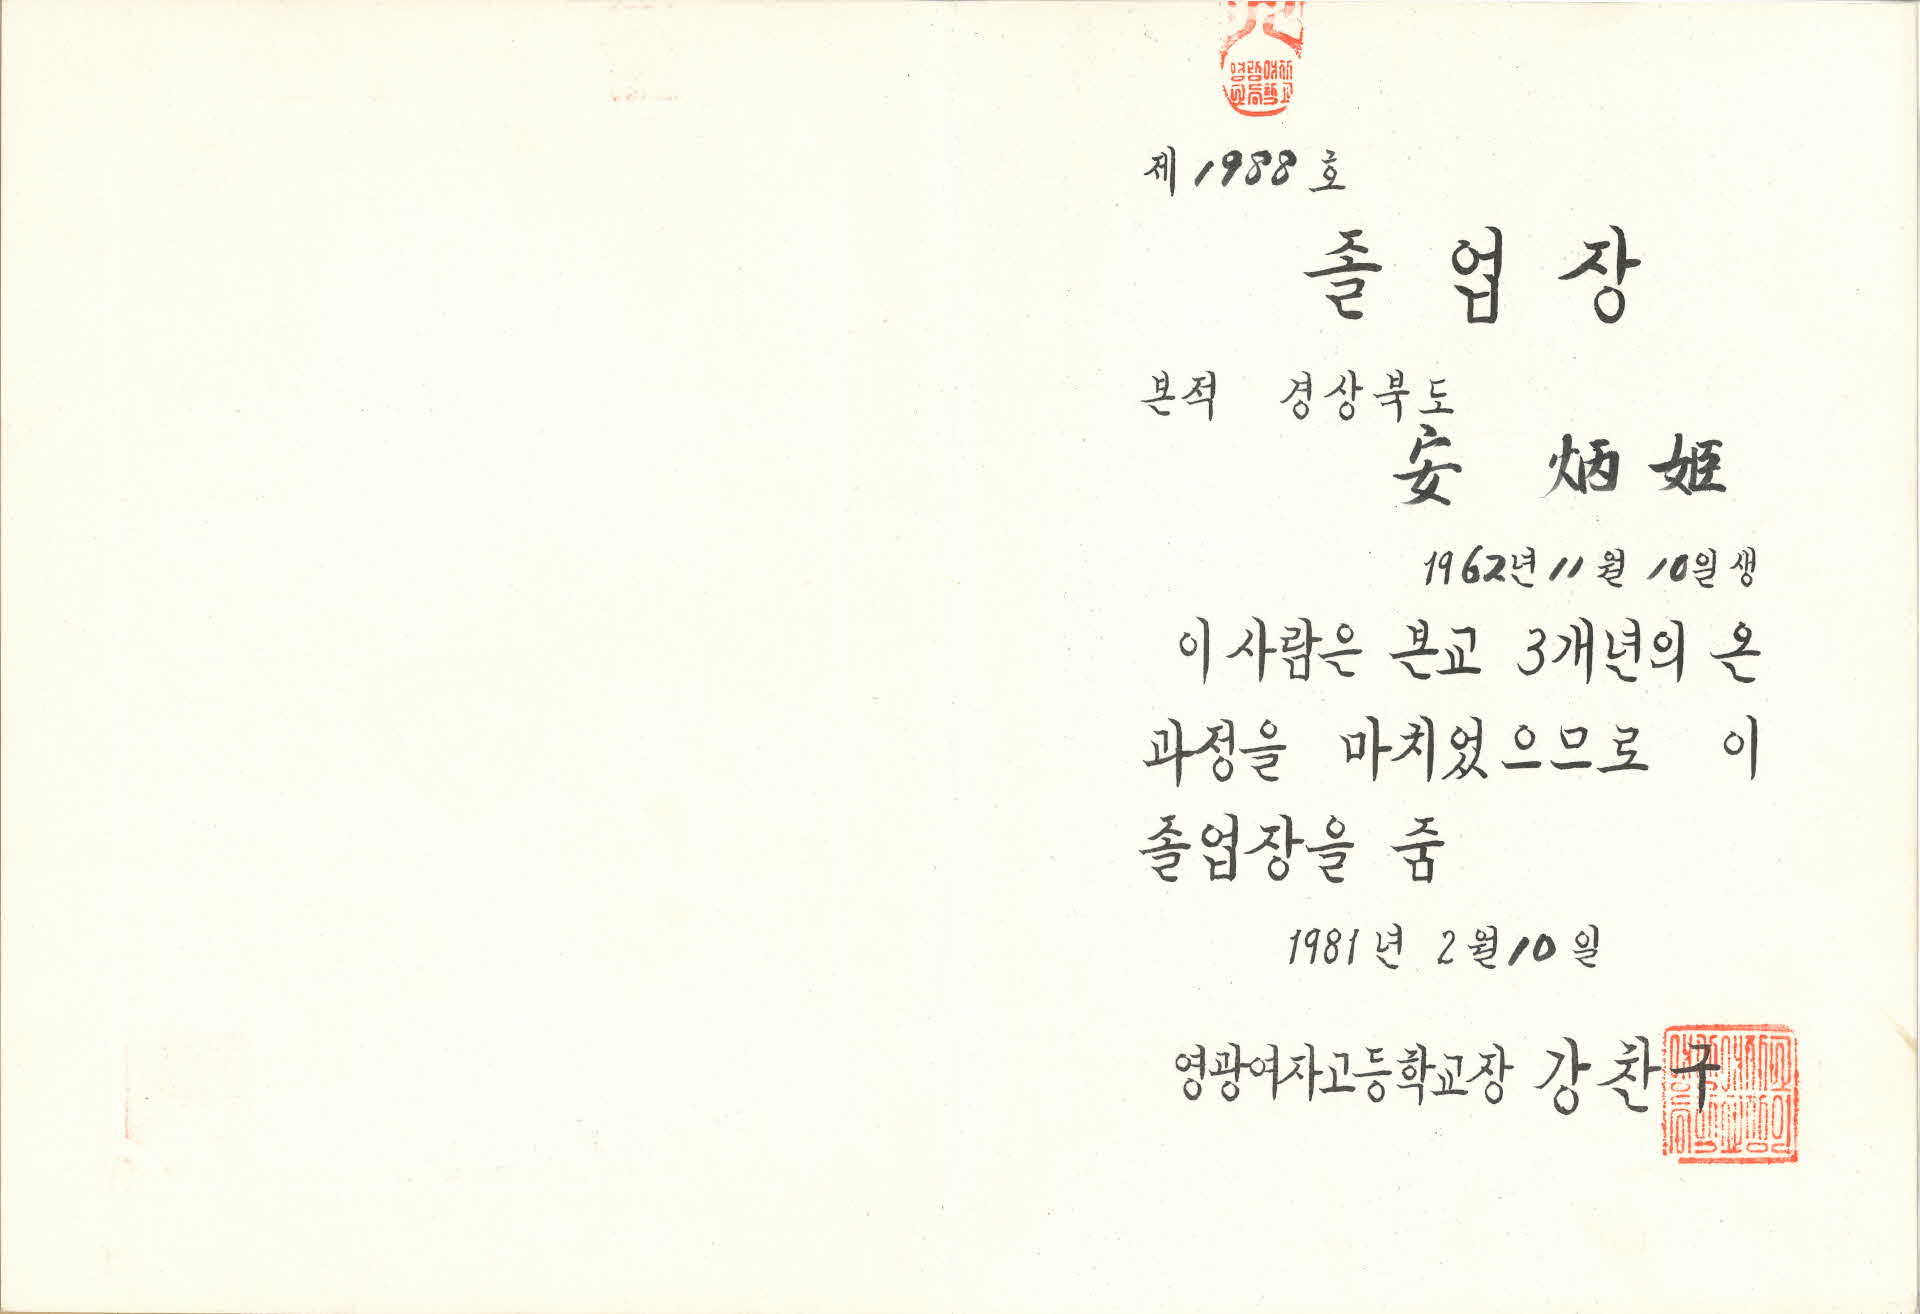 제 1988 호
졸 업 장
본적 경상북도
安 炳 姬
1962년 11월 10일생
이 사람은 본교 3개년의 온
과정을 마치었으므로 이
졸업장을 줌
1981년 2월 10일
영광여자고등학교장 강찬구